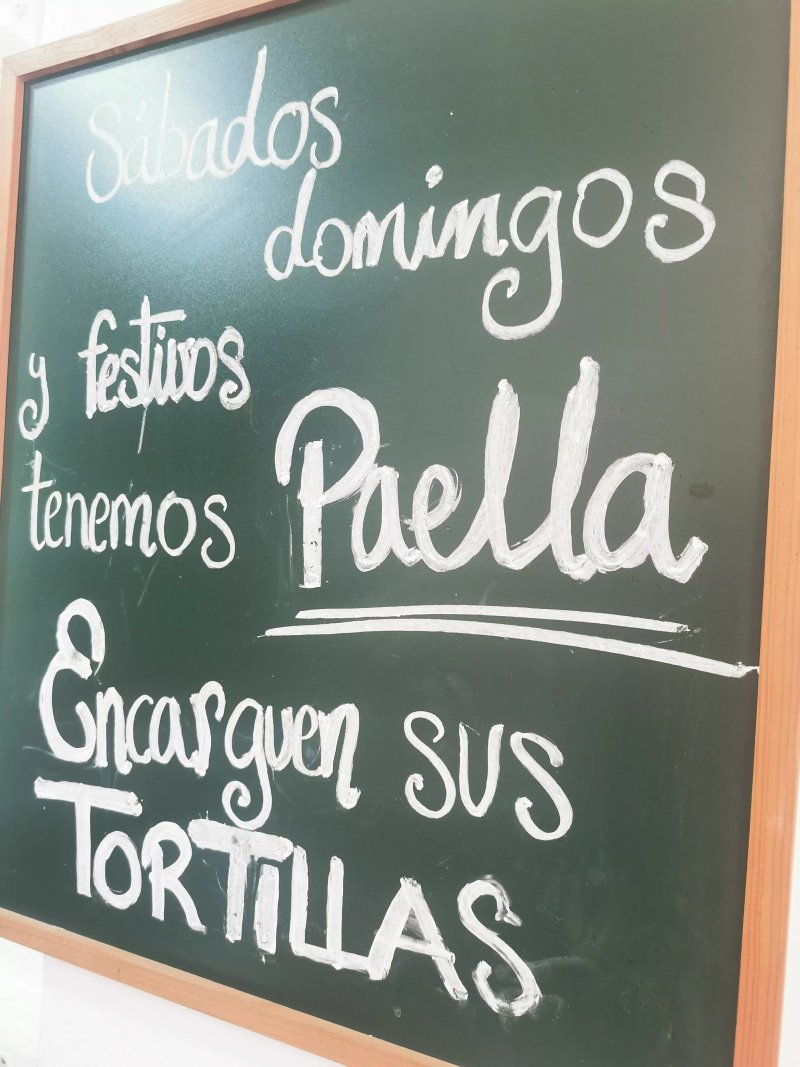 Sábados
domingos
y festivos
tenemos Paella
Encarguen sus
TORTILLAS